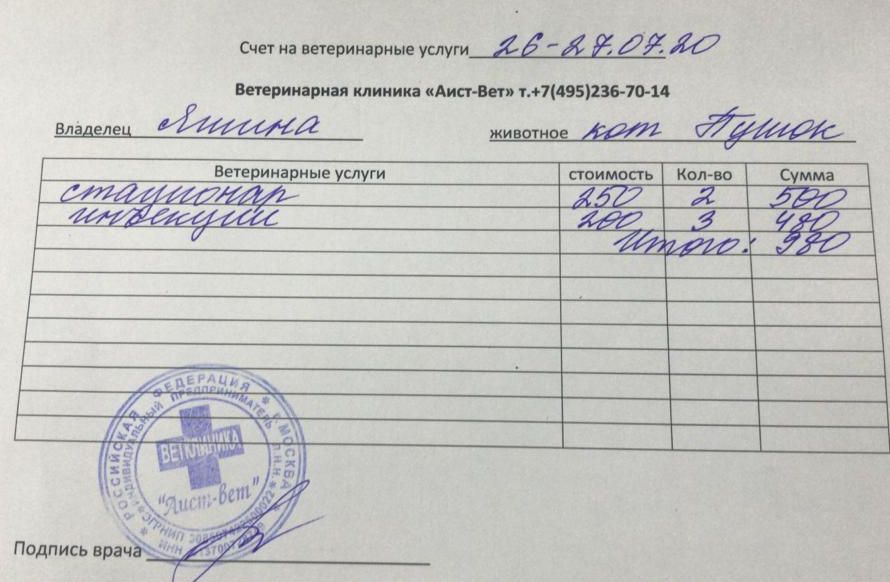 Счет на ветеринарные услуги 26-27.07.20
Ветеринарная клиника «Аист-Вет» т.+7(495)236-70-14
Владелец Яшина животное кот Пушок
Ветеринарные услуги стоимость Кол-во Сумма
стационар 250 2 500
инъекции 200 3 480
Итого: 980
РОССИЙСКАЯ ФЕДЕРАЦИЯ * Г. МОСКВА
ИНДИВИДУАЛЬНЫЙ ПРЕДПРИНИМАТЕЛЬ
ВЕТКЛИНИКА
"Аист-вет"
ЭГРНИП
ИНН
Подпись врача